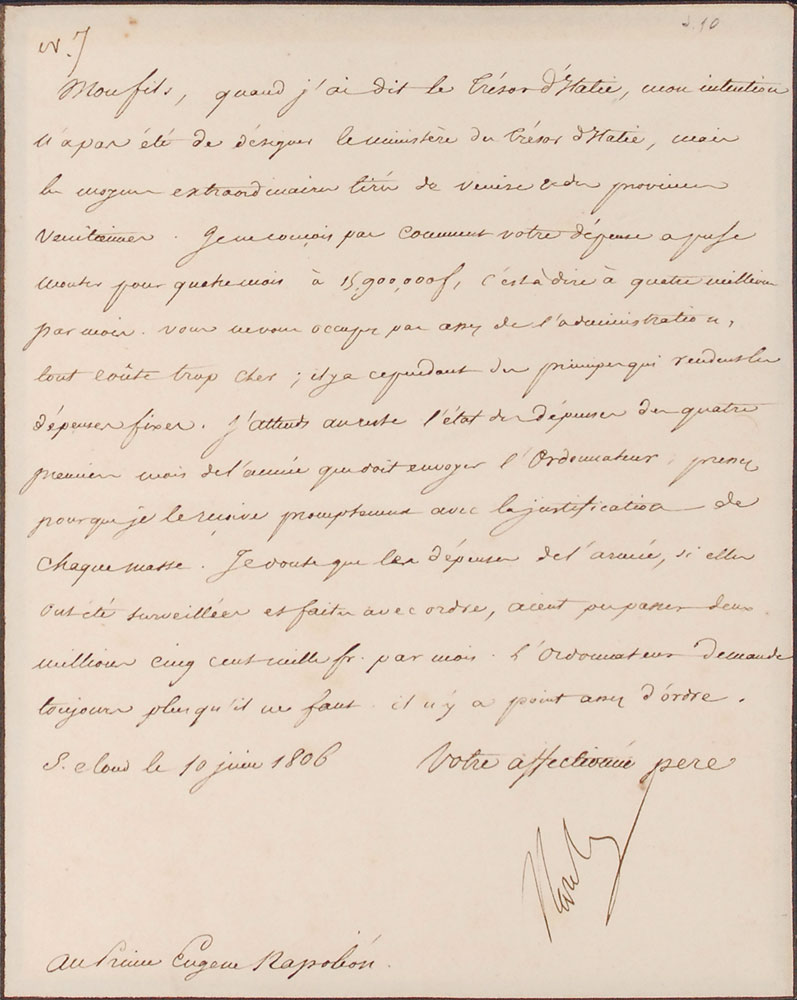 N. 7
Mon fils, quand j'ai dit le trésor d'Italie, mon intention
n'a pas été de désigner le ministère du trésor d'Italie, mais
les moyens extraordinaires tirés de Venise et des provinces
Vénitiennes. Je ne conçois pas comment votre dépense a pu se
monter pour quatre mois à 15,900,000f, c'est à dire à quatre millions
par mois. vous ne vous occupez pas assez de l'administration,
tout coûte trop cher; il y a cependant des principes qui rendent les
dépenses fixes. J'attends au reste l'état des dépenses des quatre
premiers mois de l'année que doit envoyer l'Ordonnateur; pressez
pour que je le reçoive promptement avec la justification de
chaque masse. Je doute que les dépenses de l'armée, si elles
ont été surveillées et faites avec ordre, aient pu passer deux
millions cinq cent mille fr. par mois. L'Ordonnateur demande
toujours plus qu'il ne faut. il n'y a point assez d'ordre.
S. Cloud le 10 juin 1806 Votre affectionné pere
Au Prince Eugene Napoléon.